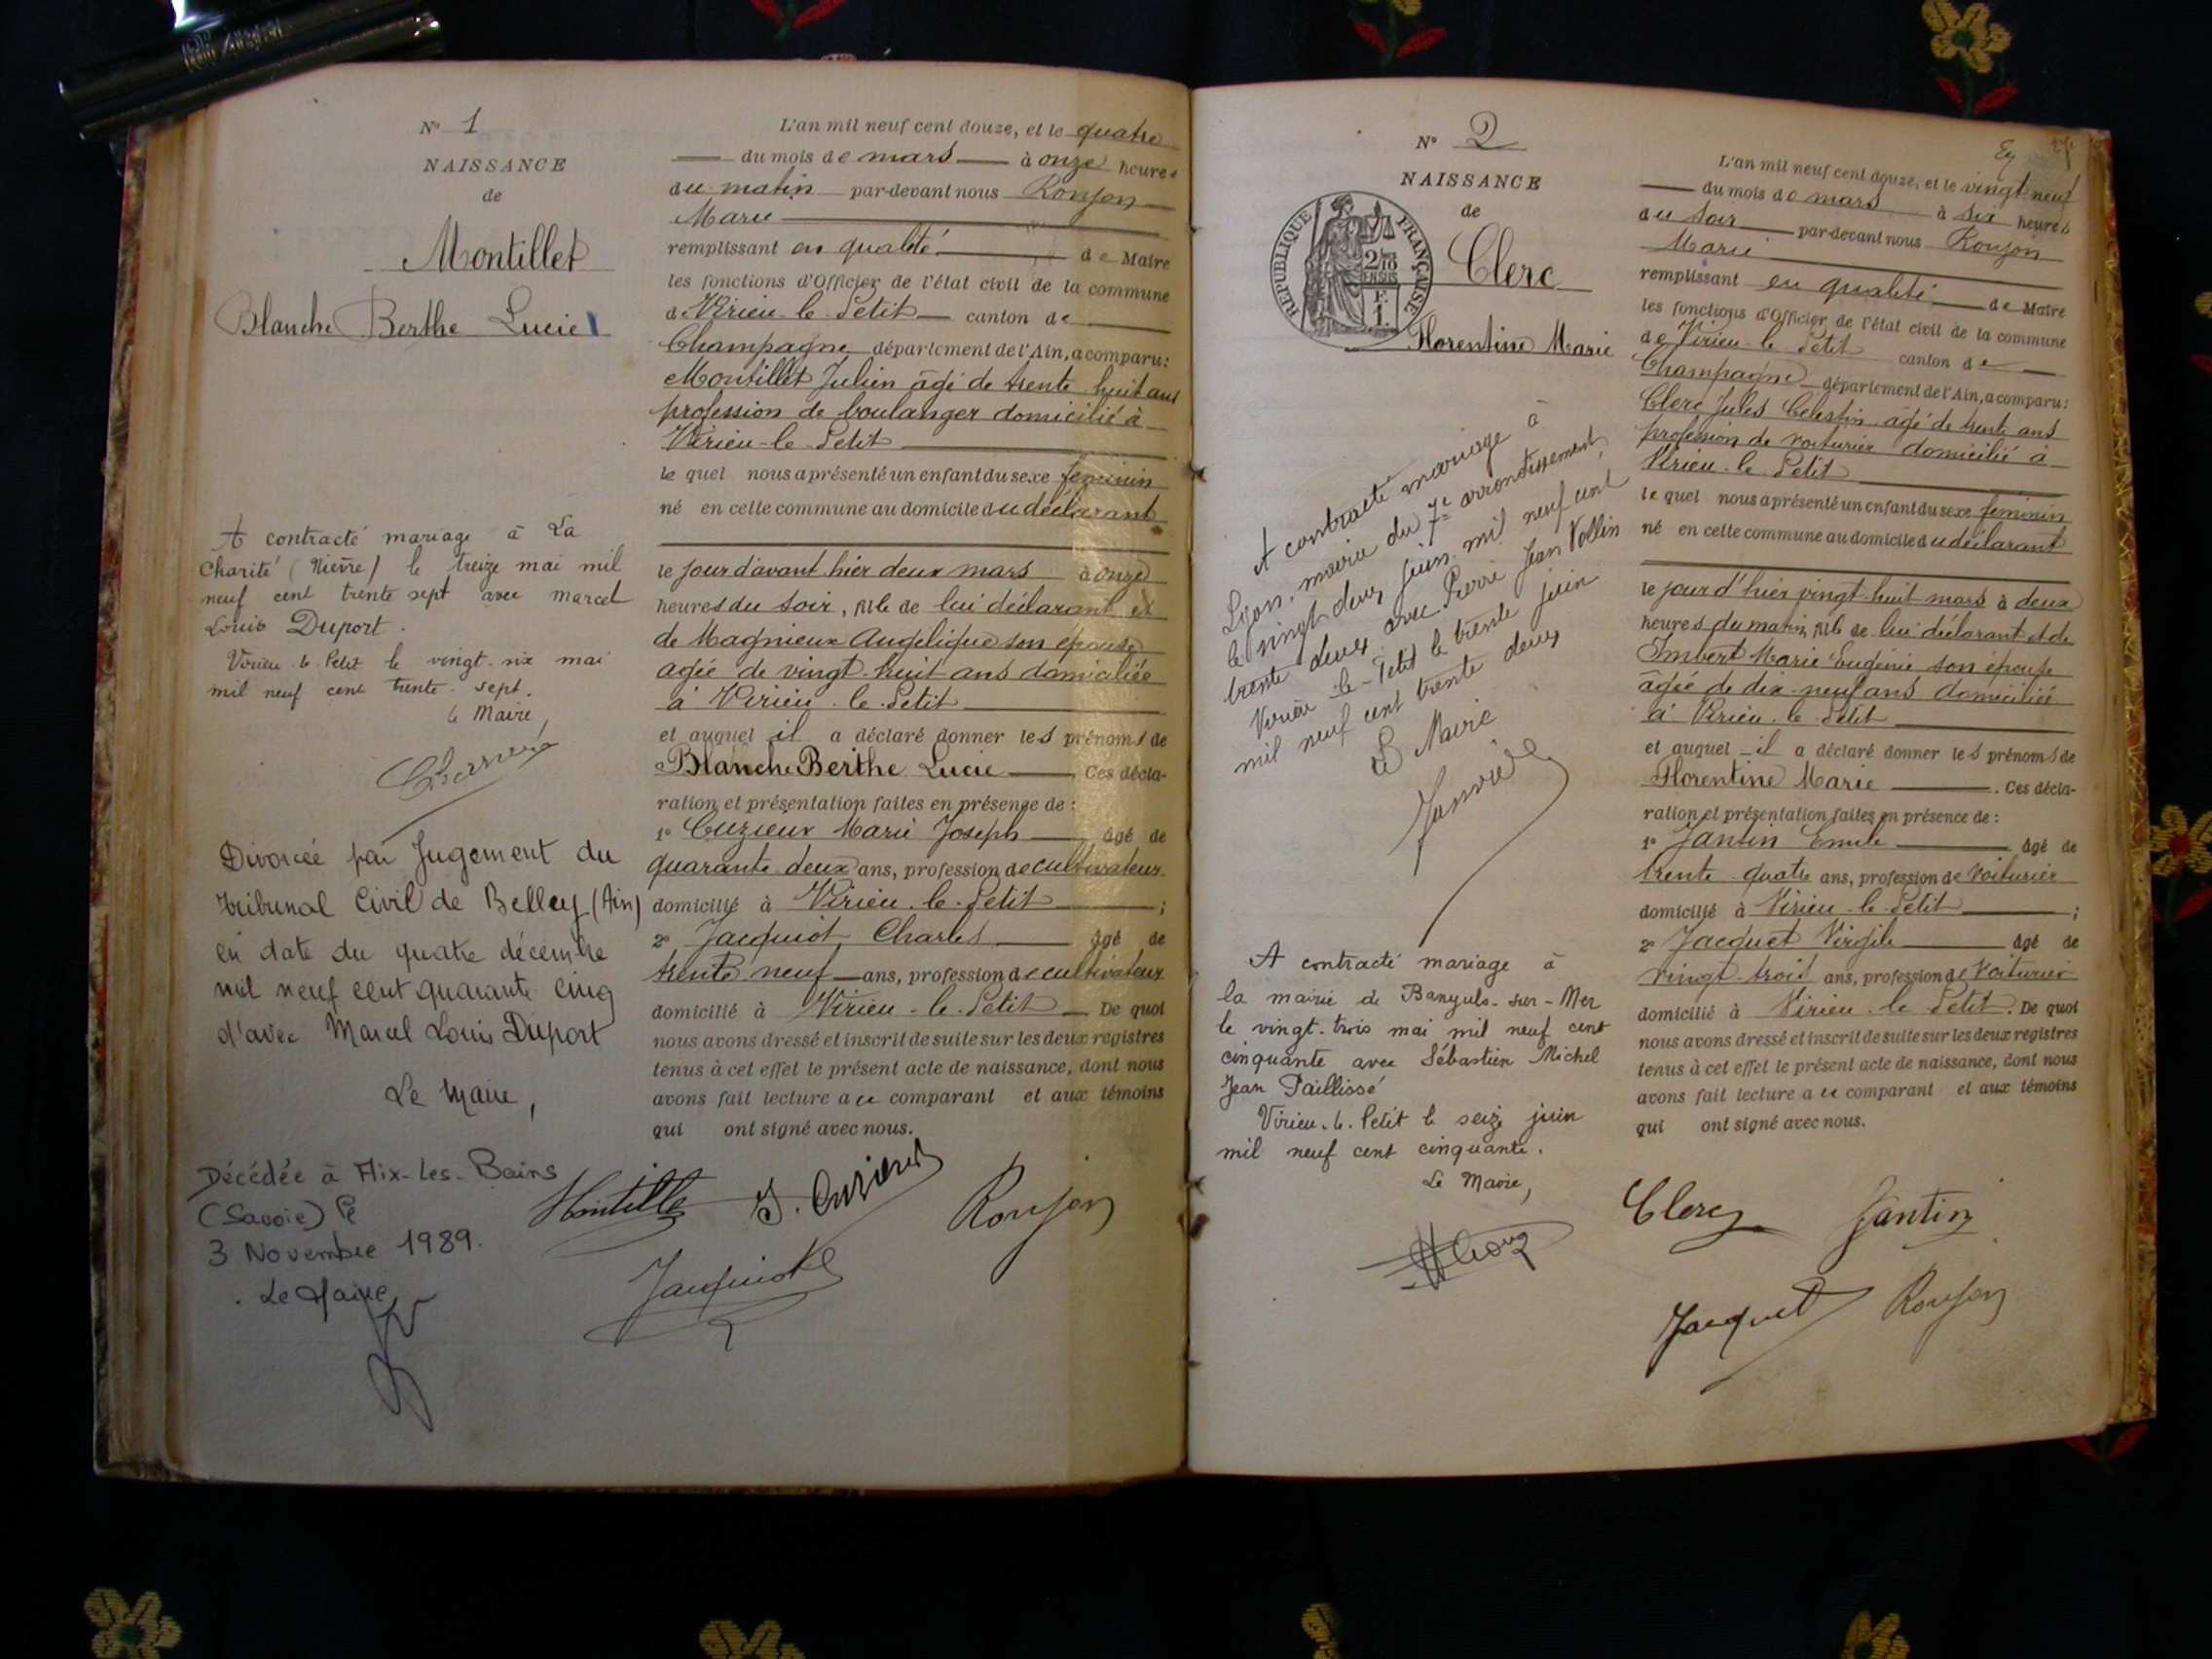 N° 1
NAISSANCE
de
Montillet
Blanche Berthe Lucie
A contracté mariage à La
Charité (Nièvre) le treize mai mil
neuf cent trente sept avec marcel
Louis Duport.
Virieu-le-Petit le vingt-six mai
mil neuf cent trente-sept.
le Maire,
Divorcée par Jugement du
Tribunal Civil de Belley (Ain)
en date du quatre décembre
mil neuf cent quarante cinq
d'avec Marcel Louis Duport
Le Maire,
Décédée à Aix-les-Bains
(Savoie) le
3 Novembre 1989.
Le Maire
L'an mil neuf cent douze, et le quatre
du mois de mars à onze heures
du matin par-devant nous Roujon
Marie
remplissant en qualité de Maire
les fonctions d'Officier de l'état civil de la commune
de Virieu-le-Petit canton de
Champagne département de l'Ain, a comparu:
Montillet Julien âgé de trente huit ans
profession de boulanger domicilié à
Virieu-le-Petit
le quel nous a présenté un enfant du sexe féminin
né en cette commune au domicile du déclarant
le jour d'avant hier deux mars à onze
heures du soir, fille de lui déclarant et
de Magnieux Angélique son épouse
agée de vingt-huit ans domiciliée
à Virieu-le-Petit
et auquel il a déclaré donner les prénoms de
Blanche Berthe Lucie Ces décla-
ration et présentation faites en présence de :
1° Cuzieux Marie Joseph âgé de
quarante deux ans, profession de cultivateur
domicilié à Virieu-le-Petit ;
2° Jacquiot Charles âgé de
trente neuf ans, profession de cultivateur
domicilié à Virieu-le-Petit De quoi
nous avons dressé et inscrit de suite sur les deux registres
tenus à cet effet le présent acte de naissance, dont nous
avons fait lecture au comparant et aux témoins
qui ont signé avec nous.
Montillet J. Cuzieux Roujon
Jacquiot
N° 2
NAISSANCE
de
RÉPUBLIQUE FRANÇAISE
2/10 EN SUS
F.
1.
Clerc
Florentine Marie
A contracté mariage à
Lyon, mairie du 7e arrondissement,
le vingt-deux juin mil neuf cent
trente deux avec Pierre Jean Vollin
Virieu-le-Petit le trente juin
mil neuf cent trente deux
Le Maire
A contracté mariage à
la mairie de Banyuls-sur-Mer
le vingt-trois mai mil neuf cent
cinquante avec Sébastien Michel
Jean Paillissé
Virieu-le-Petit le seize juin
mil neuf cent cinquante.
Le Maire,
L'an mil neuf cent douze, et le vingt-neuf
du mois de mars à six heures
du soir par-devant nous Roujon
Marie
remplissant en qualité de Maire
les fonctions d'Officier de l'état civil de la commune
de Virieu-le-Petit canton de
Champagne département de l'Ain, a comparu:
Clerc Jules Célestin âgé de trente ans
profession de voiturier domicilié à
Virieu-le-Petit
le quel nous a présenté un enfant du sexe féminin
né en cette commune au domicile du déclarant
le jour d'hier vingt-huit mars à deux
heures du matin, fille de lui déclarant et de
Imbert Marie Eugénie son épouse
âgée de dix-neuf ans domiciliée
à Virieu-le-Petit
et auquel il a déclaré donner les prénoms de
Florentine Marie . Ces décla-
ration et présentation faites en présence de :
1° Jantin Emile âgé de
trente-quatre ans, profession de Voiturier
domicilié à Virieu-le-Petit ;
2° Jacquet Virgile âgé de
vingt-trois ans, profession de Voiturier
domicilié à Virieu-le-Petit. De quoi
nous avons dressé et inscrit de suite sur les deux registres
tenus à cet effet le présent acte de naissance, dont nous
avons fait lecture au comparant et aux témoins
qui ont signé avec nous.
Clerc Jantin
Jacquet Roujon